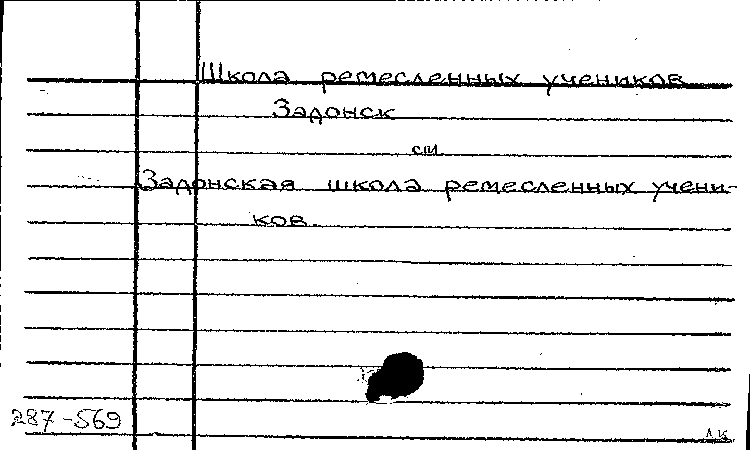 Школа ремесленных учеников
Задонск
см
Задонская школа ремесленных учени-
ков
287-569